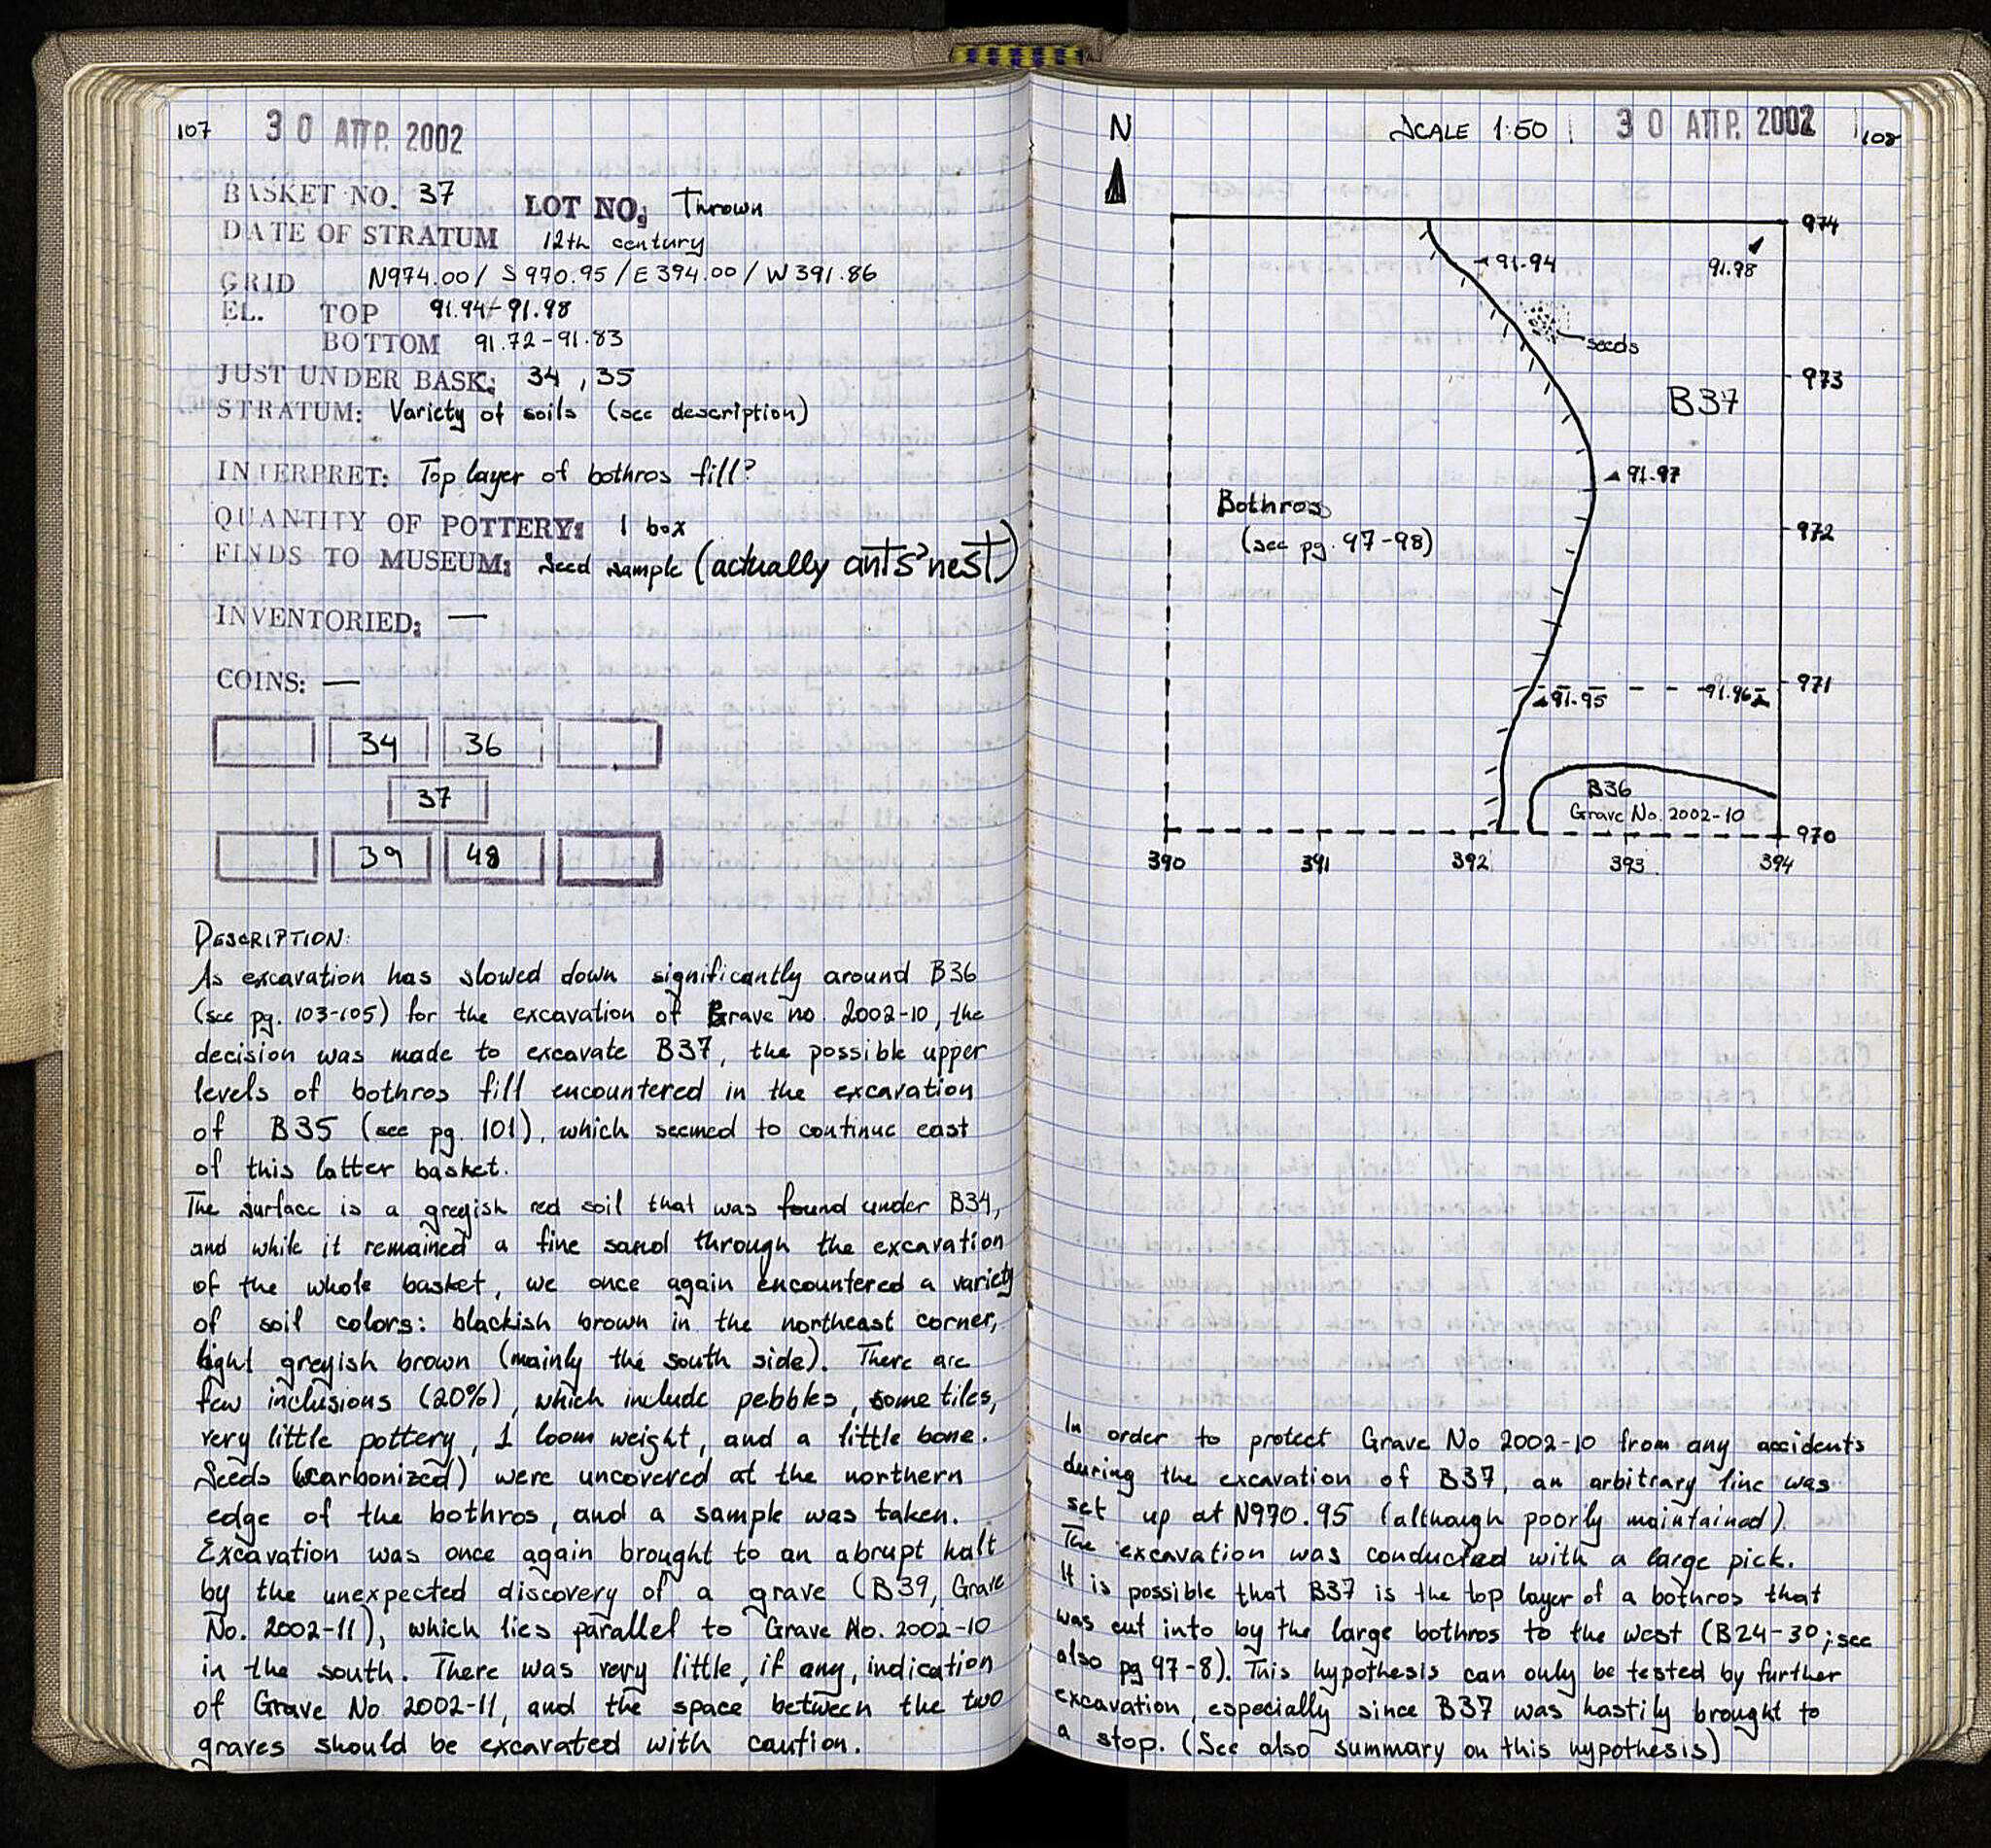 107 30 ΑΠΡ. 2002
BASKET NO. 37 LOT NO. Thrown
DATE OF STRATUM 12th century
GRID N974.00/ S970.95/E394.00/W391.86
EL. TOP 91.94-91.98
BOTTOM 91.72-91.83
JUST UNDER BASK: 34, 35
STRATUM: Variety of soils (see description)
INTERPRET: Top layer of bothros fill?
QUANTITY OF POTTERY: 1 box
FINDS TO MUSEUM: Seed sample (actually ants' nest)
INVENTORIED: —
COINS: —
34 36
37
39 48
DESCRIPTION:
As excavation has slowed down significantly around B36
(see pg. 103-105) for the excavation of Grave no. 2002-10, the
decision was made to excavate B37, the possible upper
levels of bothros fill encountered in the excavation
of B35 (see pg. 101), which seemed to continue east
of this latter basket.
The surface is a greyish red soil that was found under B34,
and while it remained a fine sand through the excavation
of the whole basket, we once again encountered a variety
of soil colors: blackish brown in the northeast corner,
light greyish brown (mainly the south side). There are
few inclusions (20%), which include pebbles, some tiles,
very little pottery, 1 loom weight, and a little bone.
Seeds (carbonized) were uncovered at the northern
edge of the bothros, and a sample was taken.
Excavation was once again brought to an abrupt halt
by the unexpected discovery of a grave (B39, Grave
No. 2002-11), which lies parallel to Grave No. 2002-10
in the south. There was very little, if any, indication
of Grave No 2002-11, and the space between the two
graves should be excavated with caution.
N SCALE 1:50 30 ΑΠΡ. 2002 108
974
91.94
91.98
seeds
973
B37
91.97
Bothros
(see pg. 97-98)
972
971
91.95 91.96
B36
Grave No. 2002-10
970
390 391 392 393 394
In order to protect Grave No 2002-10 from any accidents
during the excavation of B37, an arbitrary line was
set up at N970.95 (although poorly maintained).
The excavation was conducted with a large pick.
It is possible that B37 is the top layer of a bothros that
was cut into by the large bothros to the west (B24-30; see
also pg 97-8). This hypothesis can only be tested by further
excavation, especially since B37 was hastily brought to
a stop. (See also summary on this hypothesis)